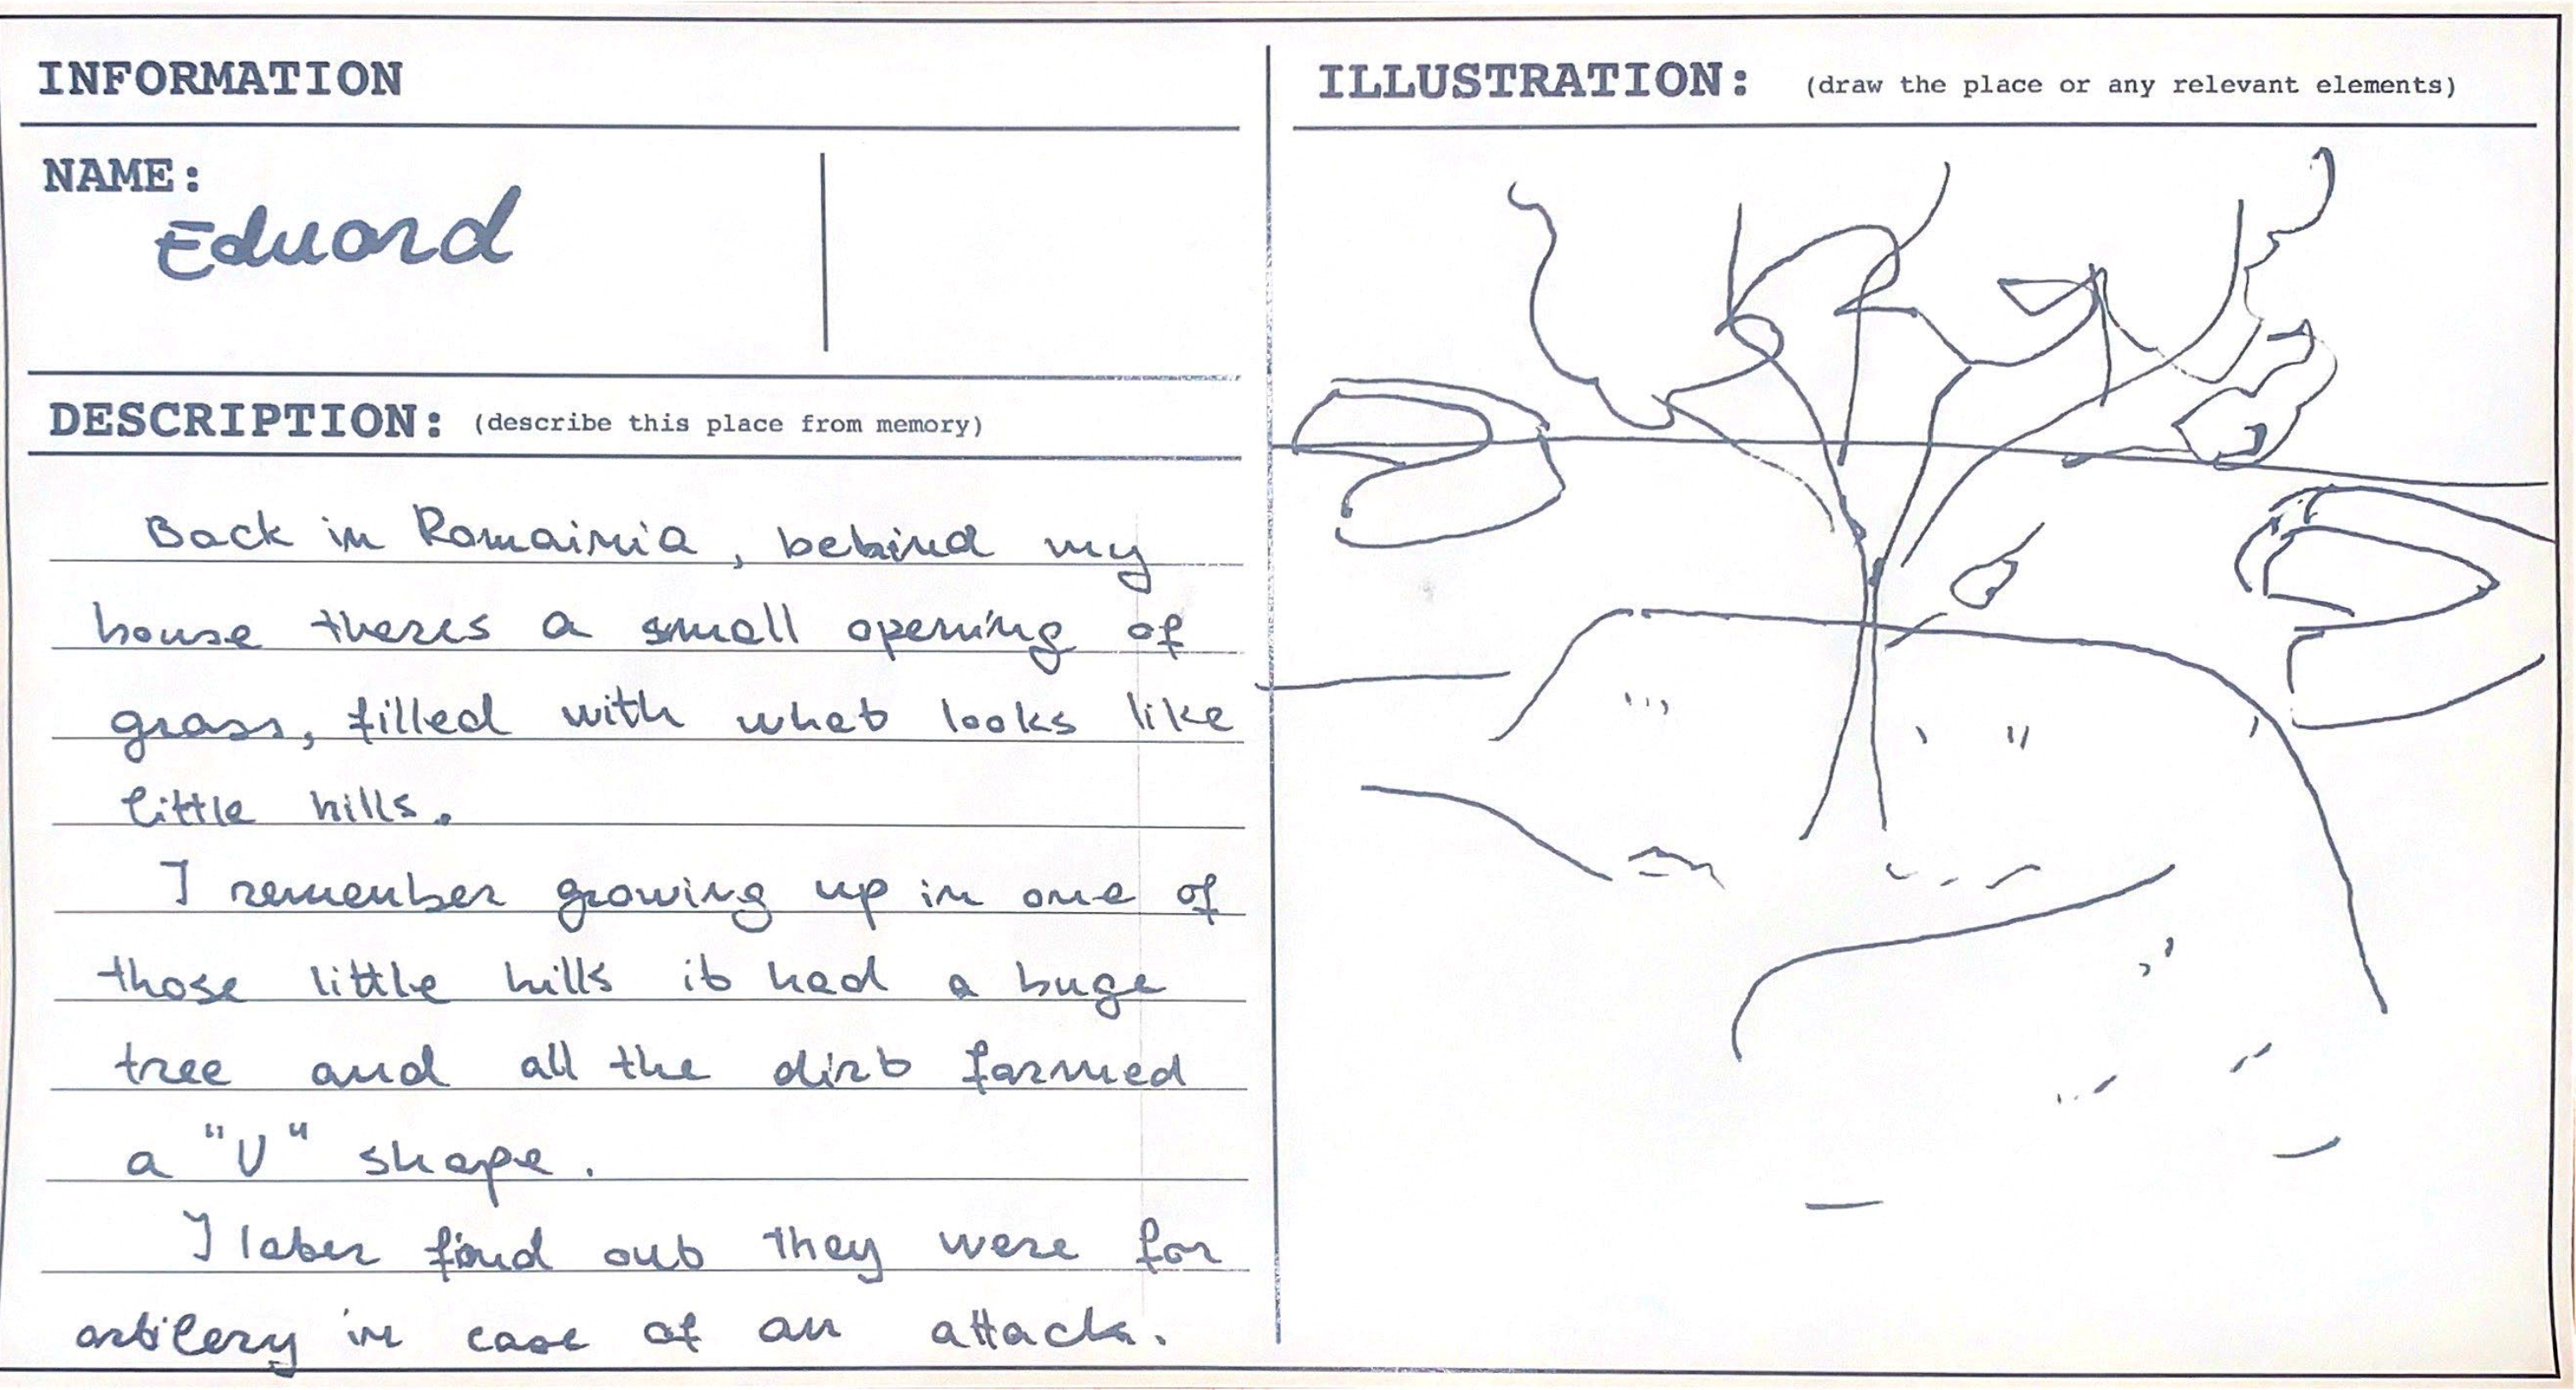 INFORMATION
NAME:
Eduard
DESCRIPTION: (describe this place from memory)
Back in Romainia, behind my
house theres a small opening of
grass, filled with what looks like
little hills.
I remember growing up in one of
those little hills it had a huge
tree and all the dirt formed
a "U" shape.
I later find out they were for
artilery in case of an attack.
ILLUSTRATION: (draw the place or any relevant elements)